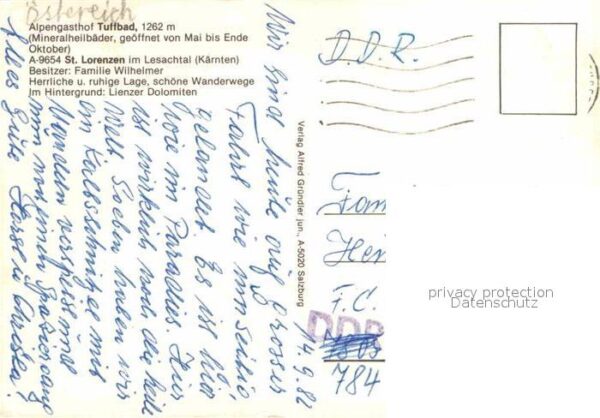 Österreich
Alpengasthof Tuffbad, 1262 m
(Mineralheilbäder, geöffnet von Mai bis Ende
Oktober)
A-9654 St. Lorenzen im Lesachtal (Kärnten)
Besitzer: Familie Wilhelmer
Herrliche u. ruhige Lage, schöne Wanderwege
Im Hintergrund: Lienzer Dolomiten
14.9.82
Wir sind heute auf grosser
Fahrt wie
gelandet. Es ist hier
wie im Paradies. Hier
ist wirklich noch die heile
Welt. Soeben haben wir
ein Kalbsschnitzel mit
verspeist und
nun noch einen Spaziergang
Alles Gute Horst u. Christa.
Verlag Alfred Gründler jun., A-5020 Salzburg
D.D.R.
Fam
Hei
F.C.
DDR
784
privacy protection
Datenschutz